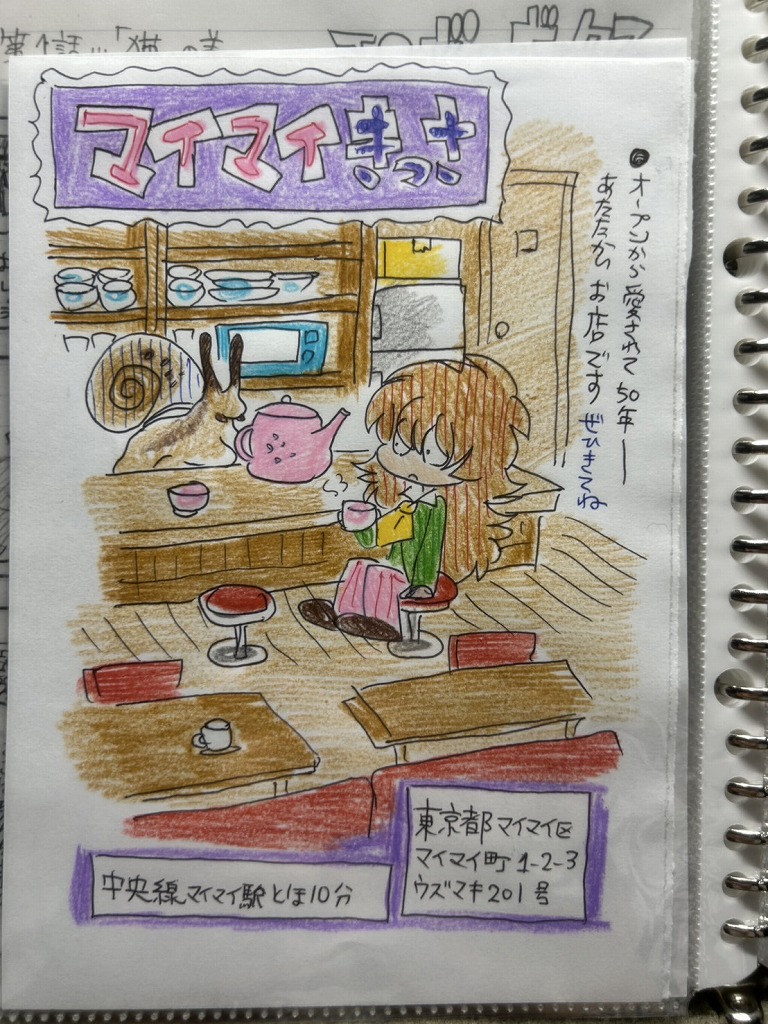 第1話 「猫」の
マイマイきっさ
●オープンから愛されて50年—
あたたかいお店です ぜひきてね
中央線マイマイ駅とほ10分
東京都マイマイ区
マイマイ町1-2-3
ウズマキ201号